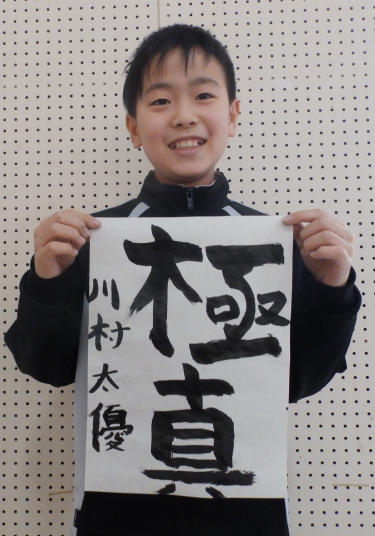 極真
川村太優